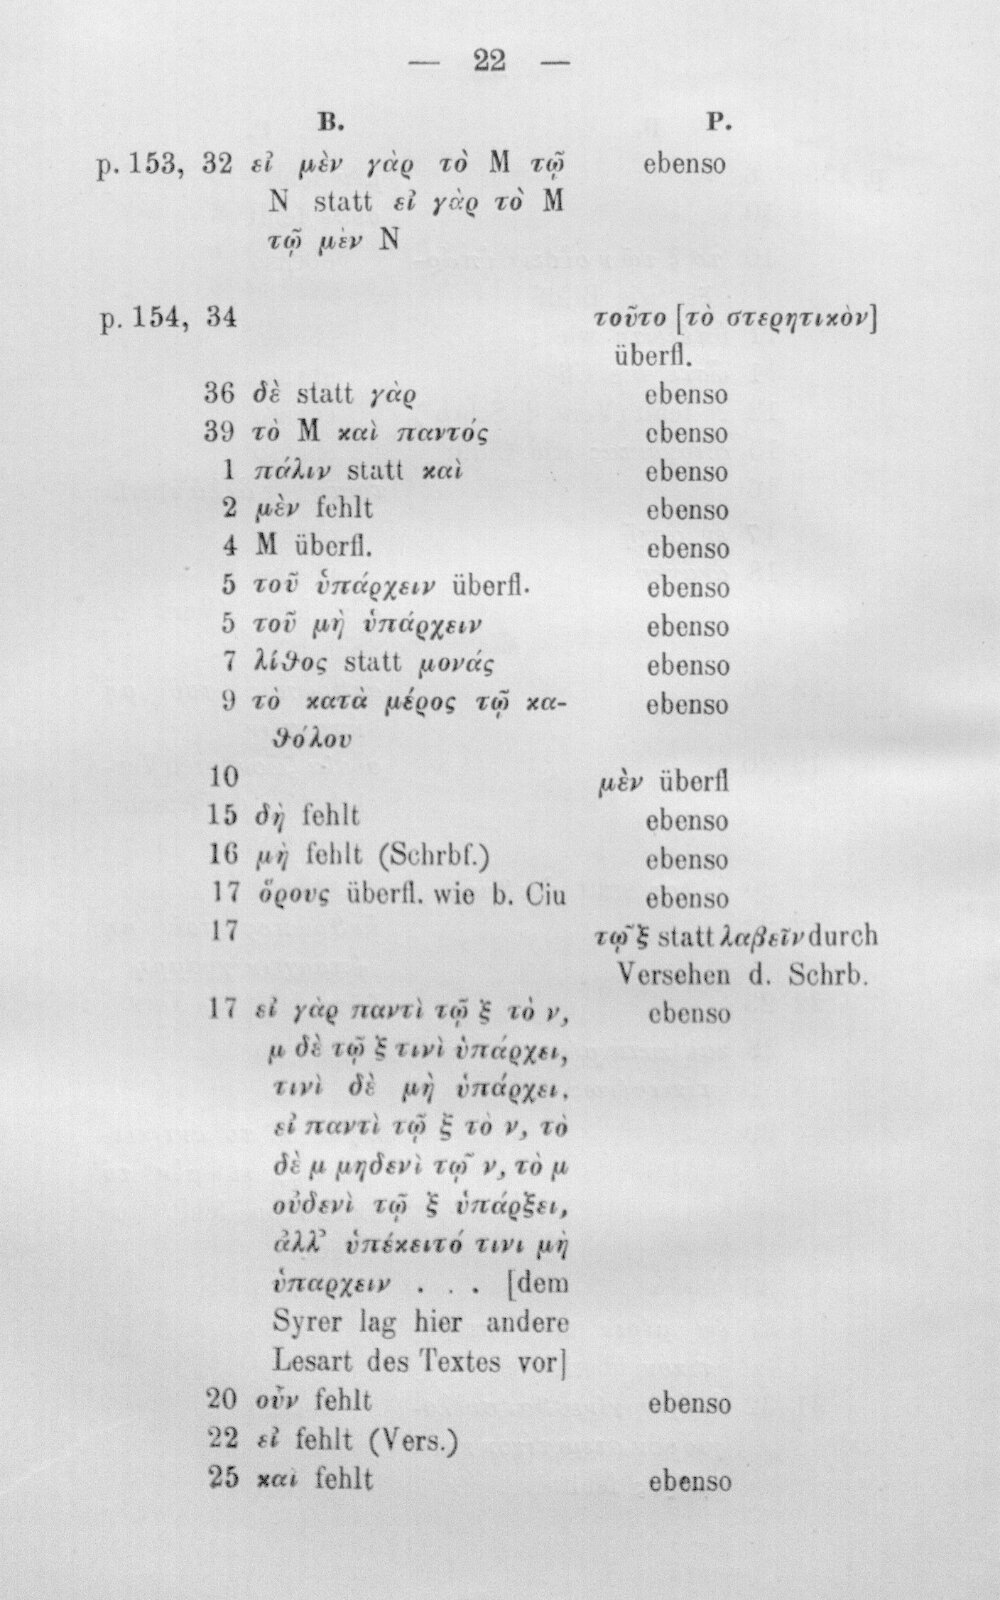 — 22 —
B. P.
p. 153, 32 εἰ μὲν γὰρ τὸ M τῷ ebenso
N statt εἰ γὰρ τὸ M
τῷ μὲν N
p. 154, 34 τοῦτο [τὸ στερητικὸν]
überfl.
36 δὲ statt γὰρ ebenso
39 τὸ M καὶ παντός ebenso
1 πάλιν statt καὶ ebenso
2 μὲν fehlt ebenso
4 M überfl. ebenso
5 τοῦ ὑπάρχειν überfl. ebenso
5 τοῦ μὴ ὑπάρχειν ebenso
7 λίθος statt μονάς ebenso
9 τὸ κατὰ μέρος τῷ κα- ebenso
θόλου
10 μὲν überfl
15 δὴ fehlt ebenso
16 μὴ fehlt (Schrbf.) ebenso
17 ὅρους überfl. wie b. Ciu ebenso
17 τῷ ξ statt λαβεῖν durch
Versehen d. Schrb.
17 εἰ γὰρ παντὶ τῷ ξ τὸ ν, ebenso
μ δὲ τῷ ξ τινὶ ὑπάρχει,
τινὶ δὲ μὴ ὑπάρχει.
εἰ παντὶ τῷ ξ τὸ ν, τὸ
δὲ μ μηδενὶ τῷ ν, τὸ μ
οὐδενὶ τῷ ξ ὑπάρξει,
ἀλλ' ὑπέκειτό τινι μὴ
ὑπαρχειν . . . [dem
Syrer lag hier andere
Lesart des Textes vor]
20 οὖν fehlt ebenso
22 εἰ fehlt (Vers.)
25 καὶ fehlt ebenso